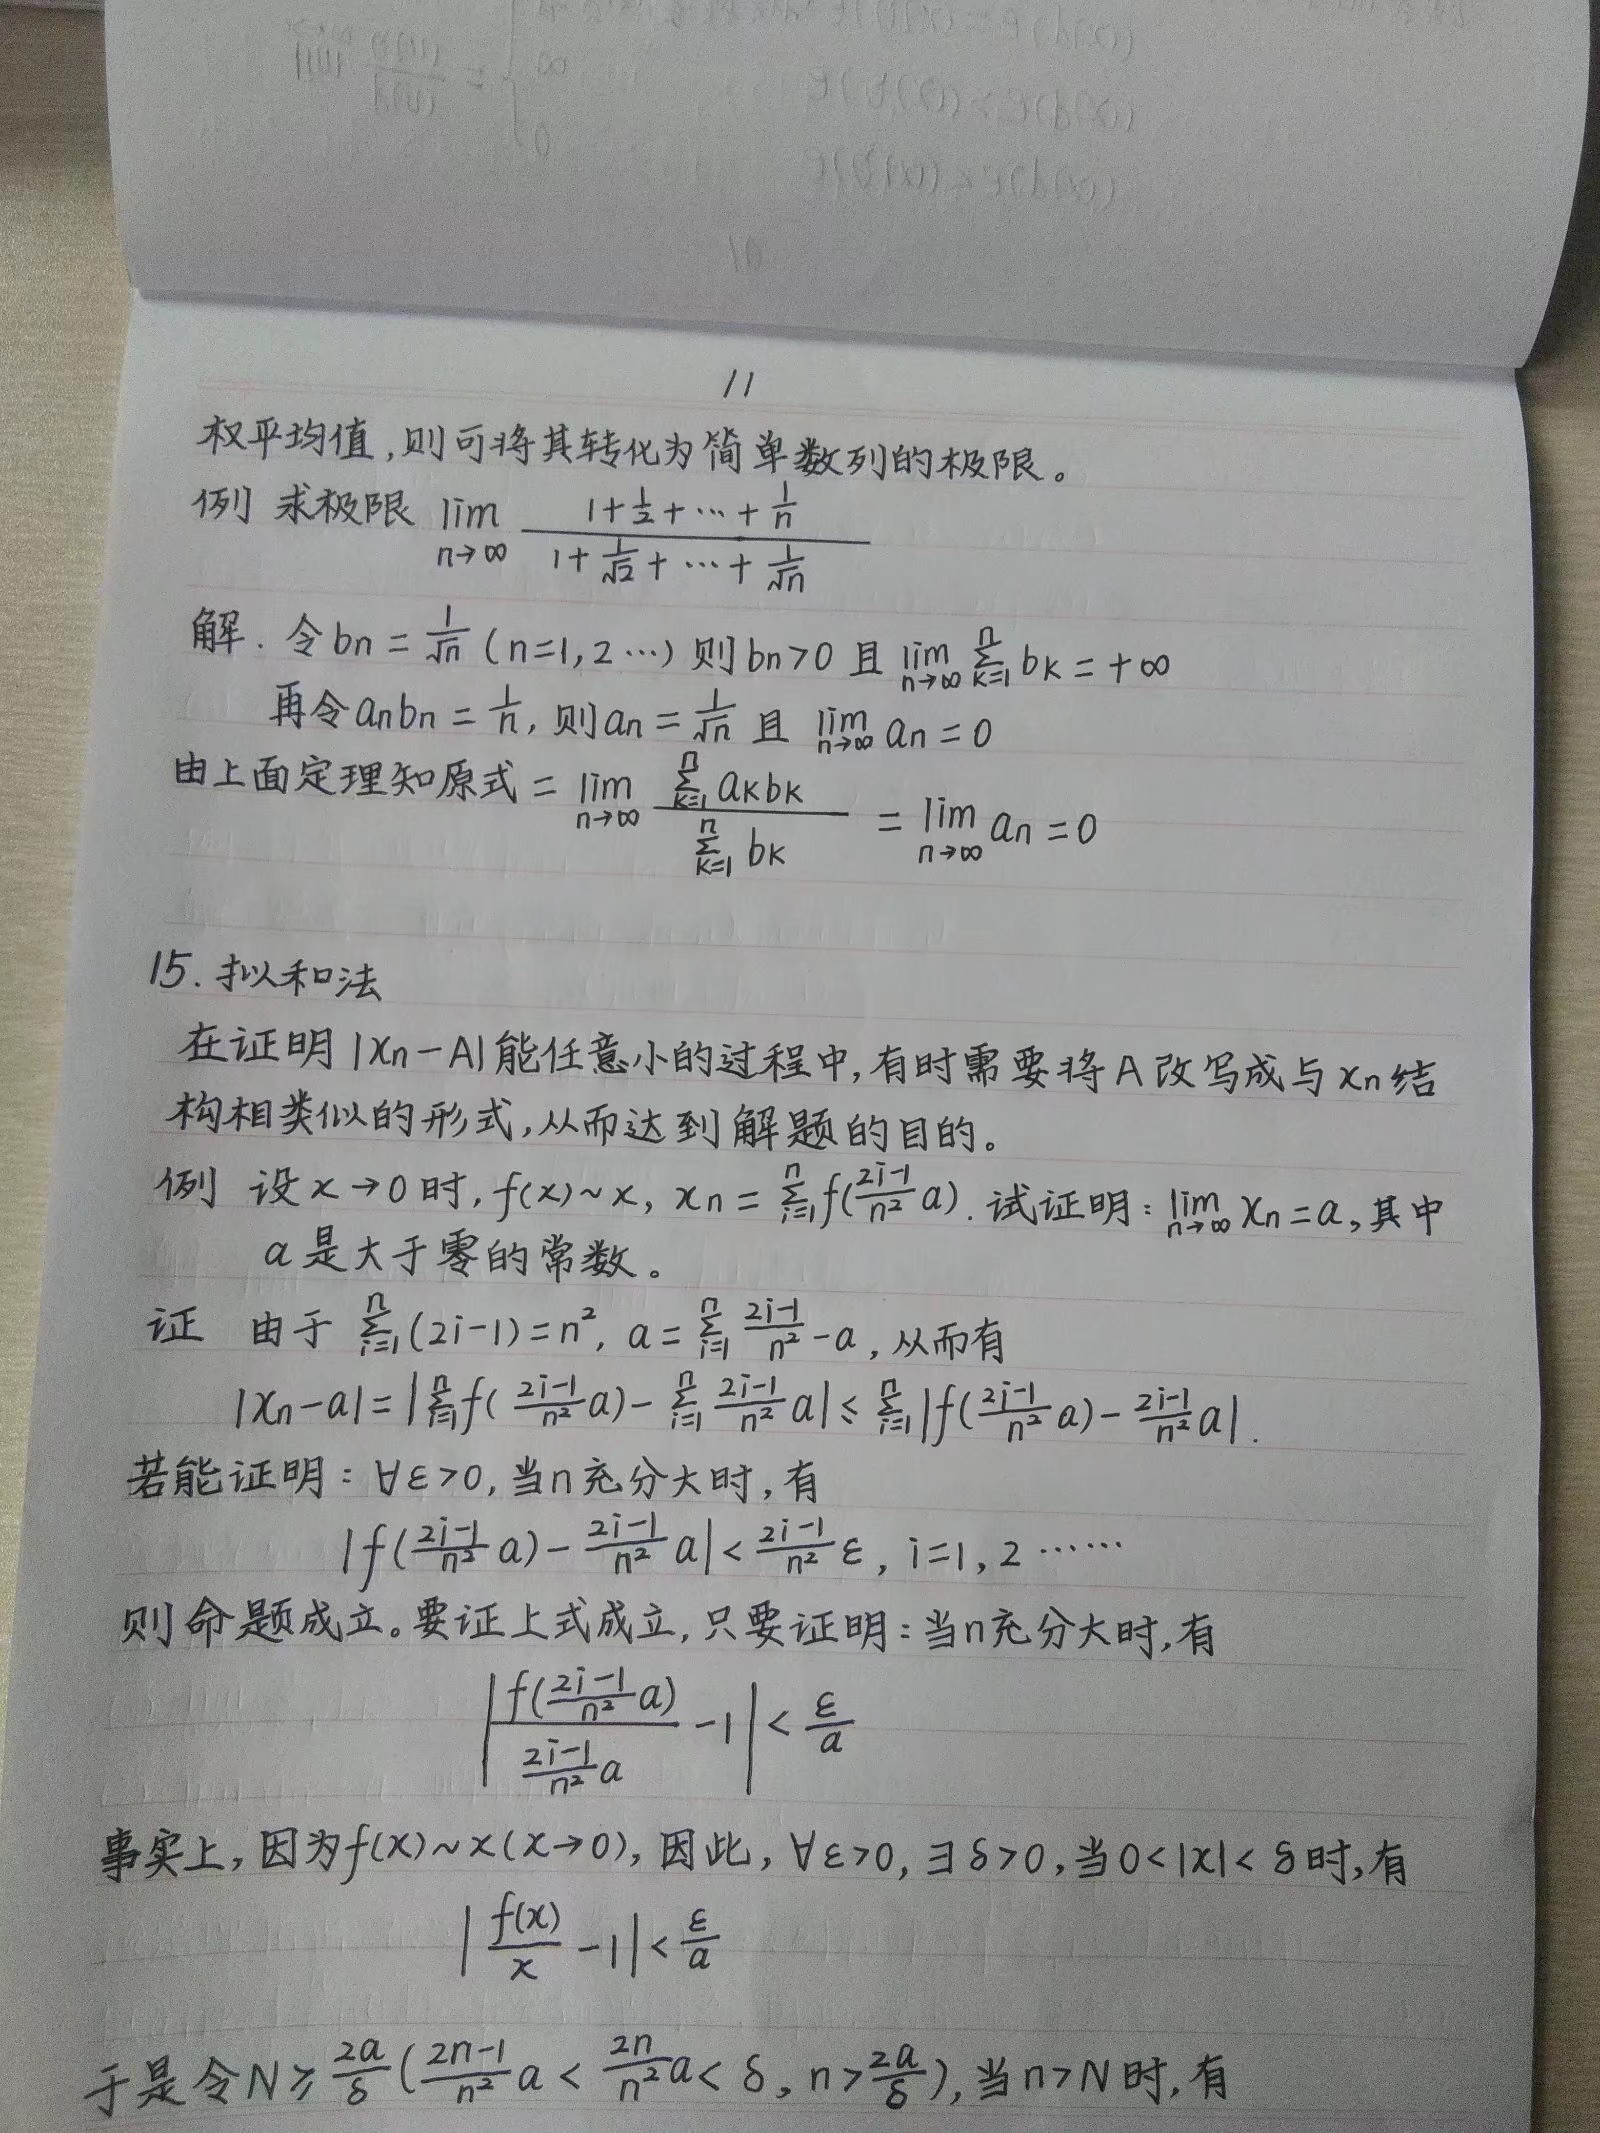 11
权平均值,则可将其转化为简单数列的极限。
例 求极限 $\lim_{n\to\infty} \frac{1+\frac{1}{2}+\cdots+\frac{1}{n}}{1+\frac{1}{\sqrt{2}}+\cdots+\frac{1}{\sqrt{n}}}$
解. 令 $b_n=\frac{1}{\sqrt{n}}$ (n=1,2…) 则 $b_n>0$ 且 $\lim_{n\to\infty}\sum_{k=1}^{n} b_k=+\infty$
再令 $a_nb_n=\frac{1}{n}$, 则 $a_n=\frac{1}{\sqrt{n}}$ 且 $\lim_{n\to\infty} a_n=0$
由上面定理知原式 = $\lim_{n\to\infty} \frac{\sum_{k=1}^{n} a_kb_k}{\sum_{k=1}^{n} b_k} = \lim_{n\to\infty} a_n=0$
15. 拟和法
在证明 $|x_n-A|$ 能任意小的过程中,有时需要将A改写成与 $x_n$ 结
构相类似的形式,从而达到解题的目的。
例 设 $x\to0$ 时, $f(x)\sim x$, $x_n=\sum_{i=1}^{n} f(\frac{2i-1}{n^2}a)$. 试证明: $\lim_{n\to\infty} x_n=a$, 其中
a是大于零的常数。
证 由于 $\sum_{i=1}^{n}(2i-1)=n^2$, $a=\sum_{i=1}^{n}\frac{2i-1}{n^2}-a$, 从而有
$|x_n-a|=|\sum_{i=1}^{n} f(\frac{2i-1}{n^2}a)-\sum_{i=1}^{n}\frac{2i-1}{n^2}a|\leq\sum_{i=1}^{n}|f(\frac{2i-1}{n^2}a)-\frac{2i-1}{n^2}a|$.
若能证明: $\forall\varepsilon>0$, 当n充分大时,有
$|f(\frac{2i-1}{n^2}a)-\frac{2i-1}{n^2}a|<\frac{2i-1}{n^2}\varepsilon$, i=1,2……
则命题成立。要证上式成立,只要证明:当n充分大时,有
$\left|\frac{f(\frac{2i-1}{n^2}a)}{\frac{2i-1}{n^2}a}-1\right|<\frac{\varepsilon}{a}$
事实上,因为 $f(x)\sim x(x\to0)$, 因此, $\forall\varepsilon>0$, $\exists\delta>0$, 当 $0<|x|<\delta$ 时,有
$\left|\frac{f(x)}{x}-1\right|<\frac{\varepsilon}{a}$
于是令 $N\geq\frac{2a}{\delta}(\frac{2n-1}{n^2}a<\frac{2n}{n^2}a<\delta, n>\frac{2a}{\delta})$, 当n>N时,有